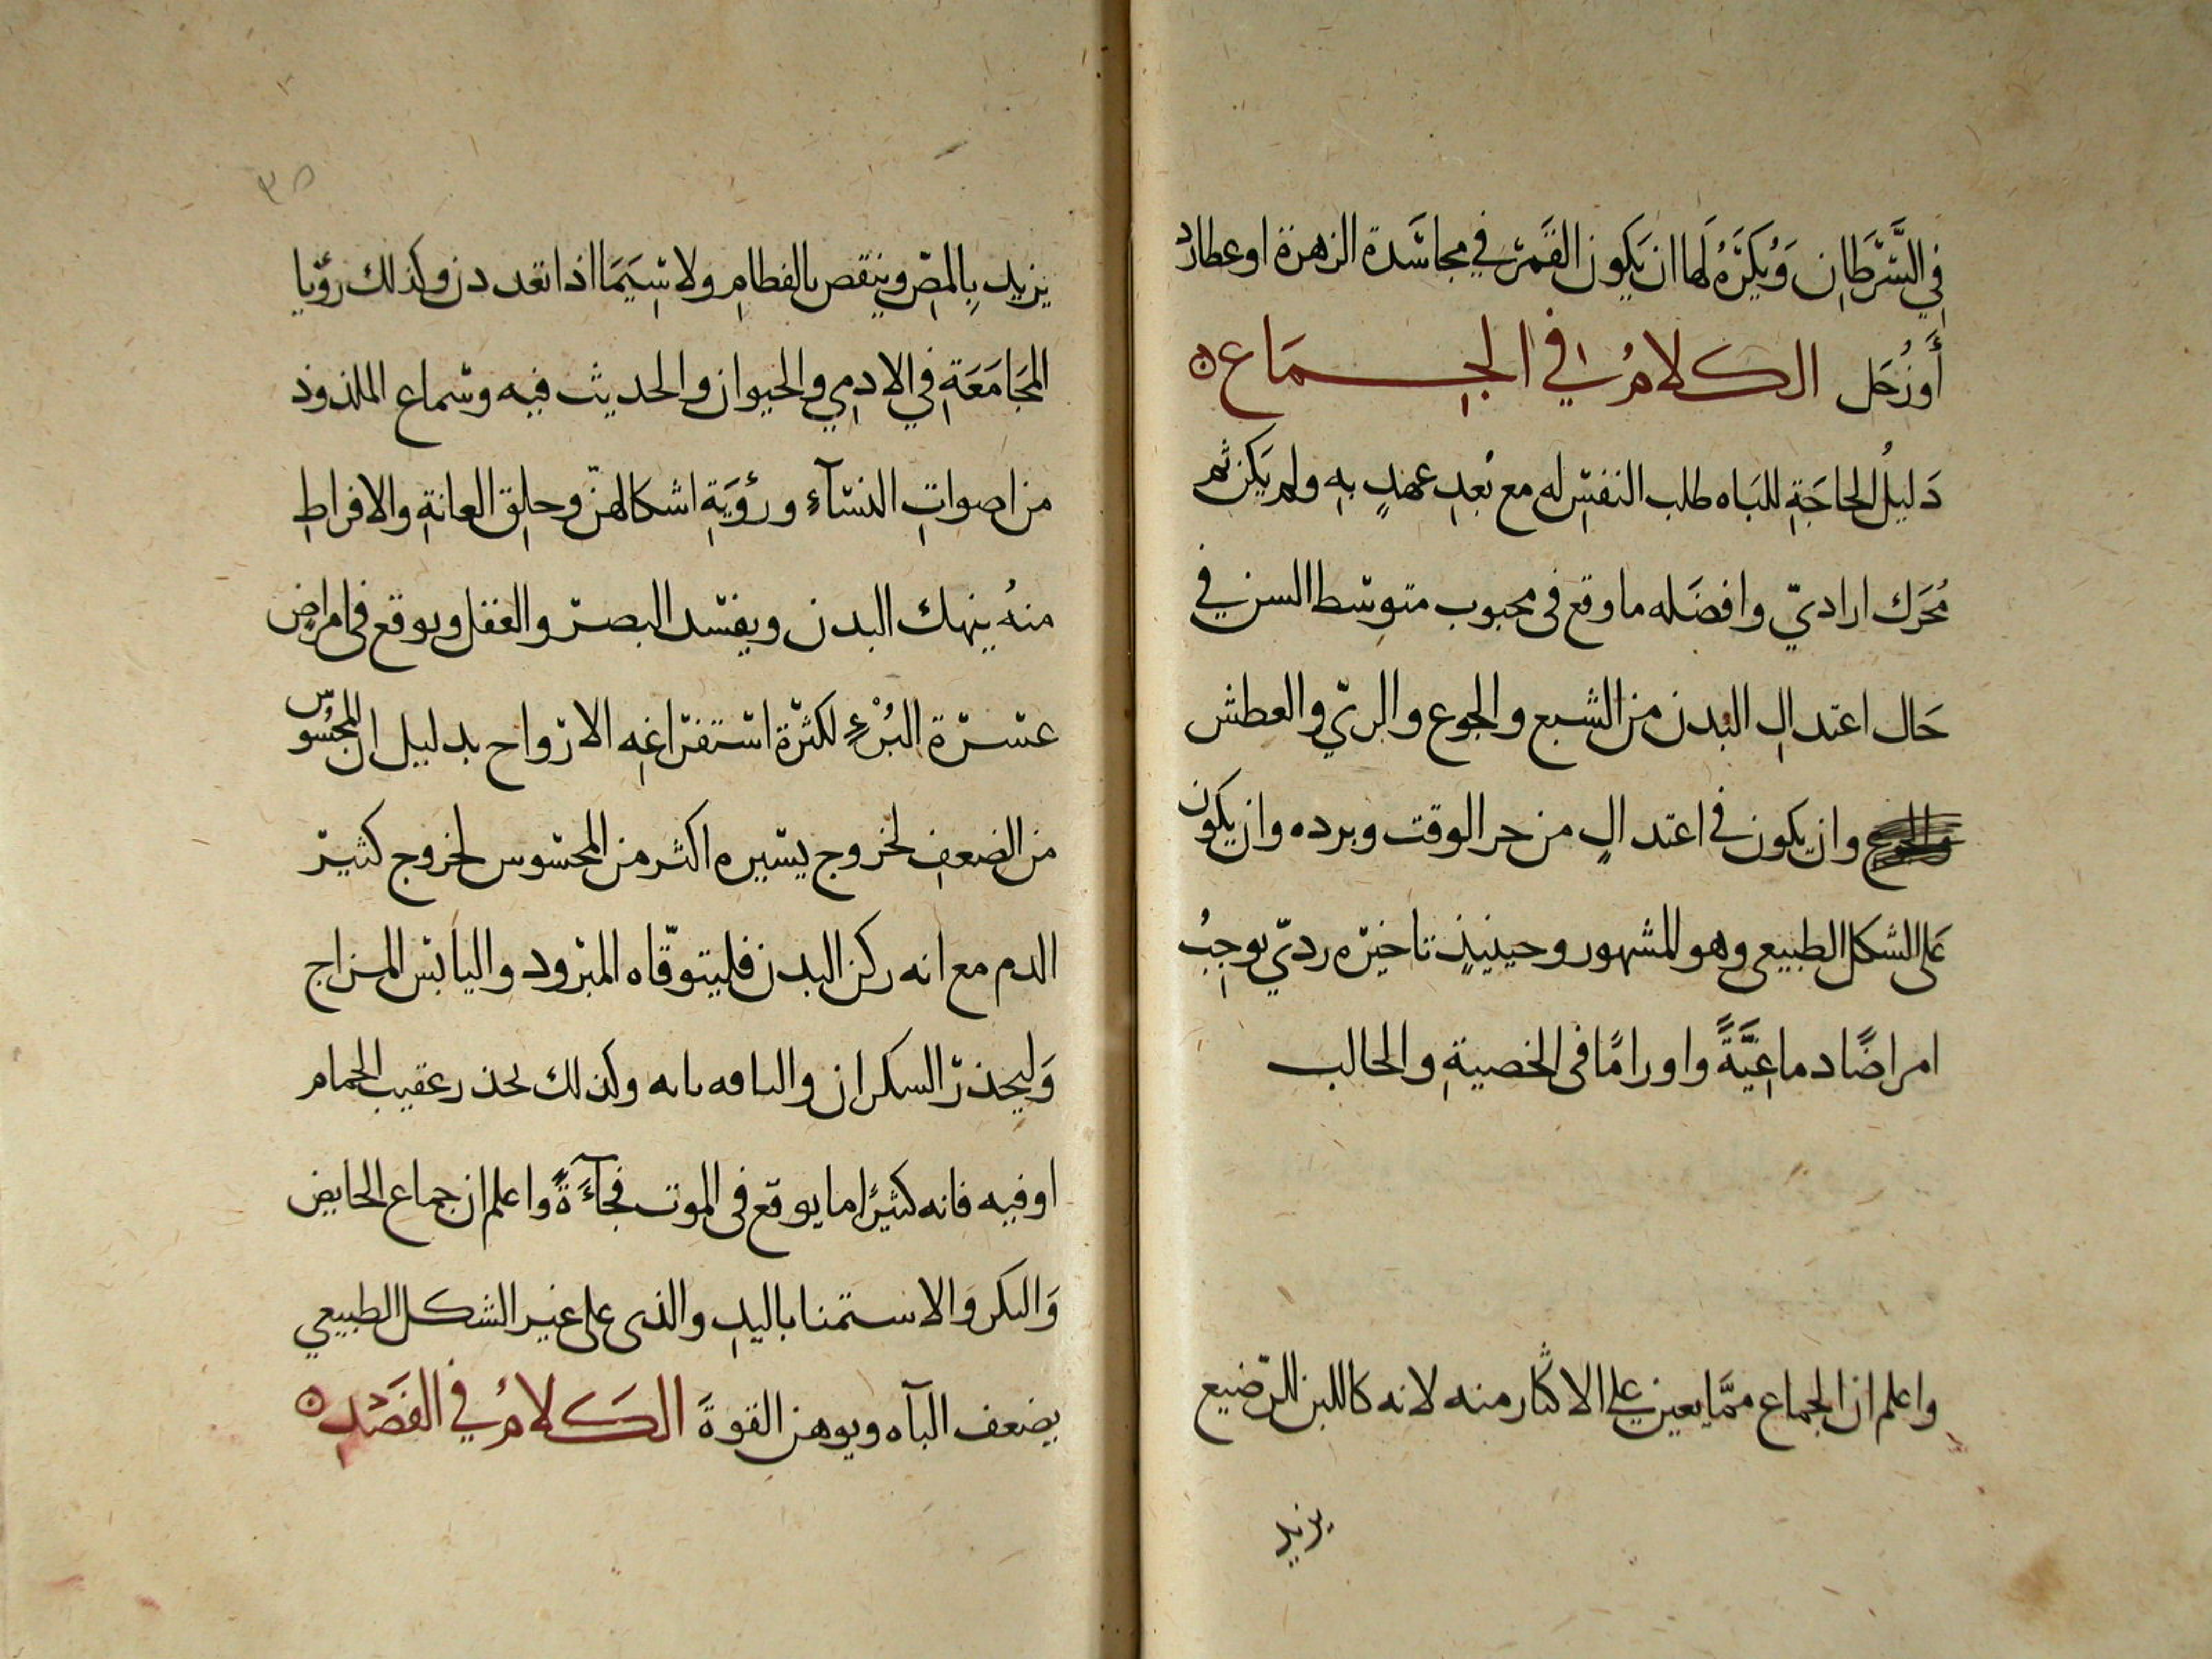 في السَّرَطَانِ وَيُكرَهُ لَها ان يَكون القَمَر في مجاسَدة الزهرة او عطارد
أَو زُحَل الكلامُ في الجِمَاع
دَليلُ الحاجَةِ للبَاه طلب النفسِ له مع بُعدِ عهدٍ بِهِ ولم يَكن ثم
مُحَرك اراديّ وافضَله ما وقع فى محبوب متوسّط السن في
حَال اعتدالِ البَدن من الشبع والجوع والريّ والعطش
وان يكون في اعتدالٍ من حر الوقت وبرده وان يكون
عَلى الشكل الطبيعى وهو المشهور وحينيذٍ تاخيره رديّ يوجِبُ
امراضًا دماغِيَّةً واورامًا فى الخصيةِ والحالب
واعلم ان الجماع ممّا يعين على الاكثار منه لانه كاللبن للرّضيع
يزيد
٣٥
يزيد بِالمصِّ وينقص بالفطامِ ولا سِيَمَا اذا تعددن وكذلك رؤيا
المجَامَعَةِ في الادمِي والحيوان والحديث فيه وسماع الملذوذ
من اصواتِ النسآءِ ورؤيَةِ اشكالهنّ وحلِق العانةِ والافراطِ
منهُ ينهك البدن ويفسد البصر والعقل ويوقع فى امراضٍ
عسرة البُرْءِ لكثرة استفراغِه الارواح بدليل ان المحسُوس
من الضعفِ لخروج يسيره اكثر من المحسوس لخروج كثير
الدم مع انه ركن البدن فليتوقّاه المبرود واليابس المزاج
وَليحذر السكران والناقه بابه وكذلك يحذر عقيب الحمام
او فيه فانه كثيرًا ما يوقع فى الموت فجآءَةً واعلم ان جماع الحايض
وَالبكر وَالاستمنا باليدِ والذى على غير الشكل الطبيعي
يضعف البآه ويوهن القوةَ الكلامُ في الفَصْدِ